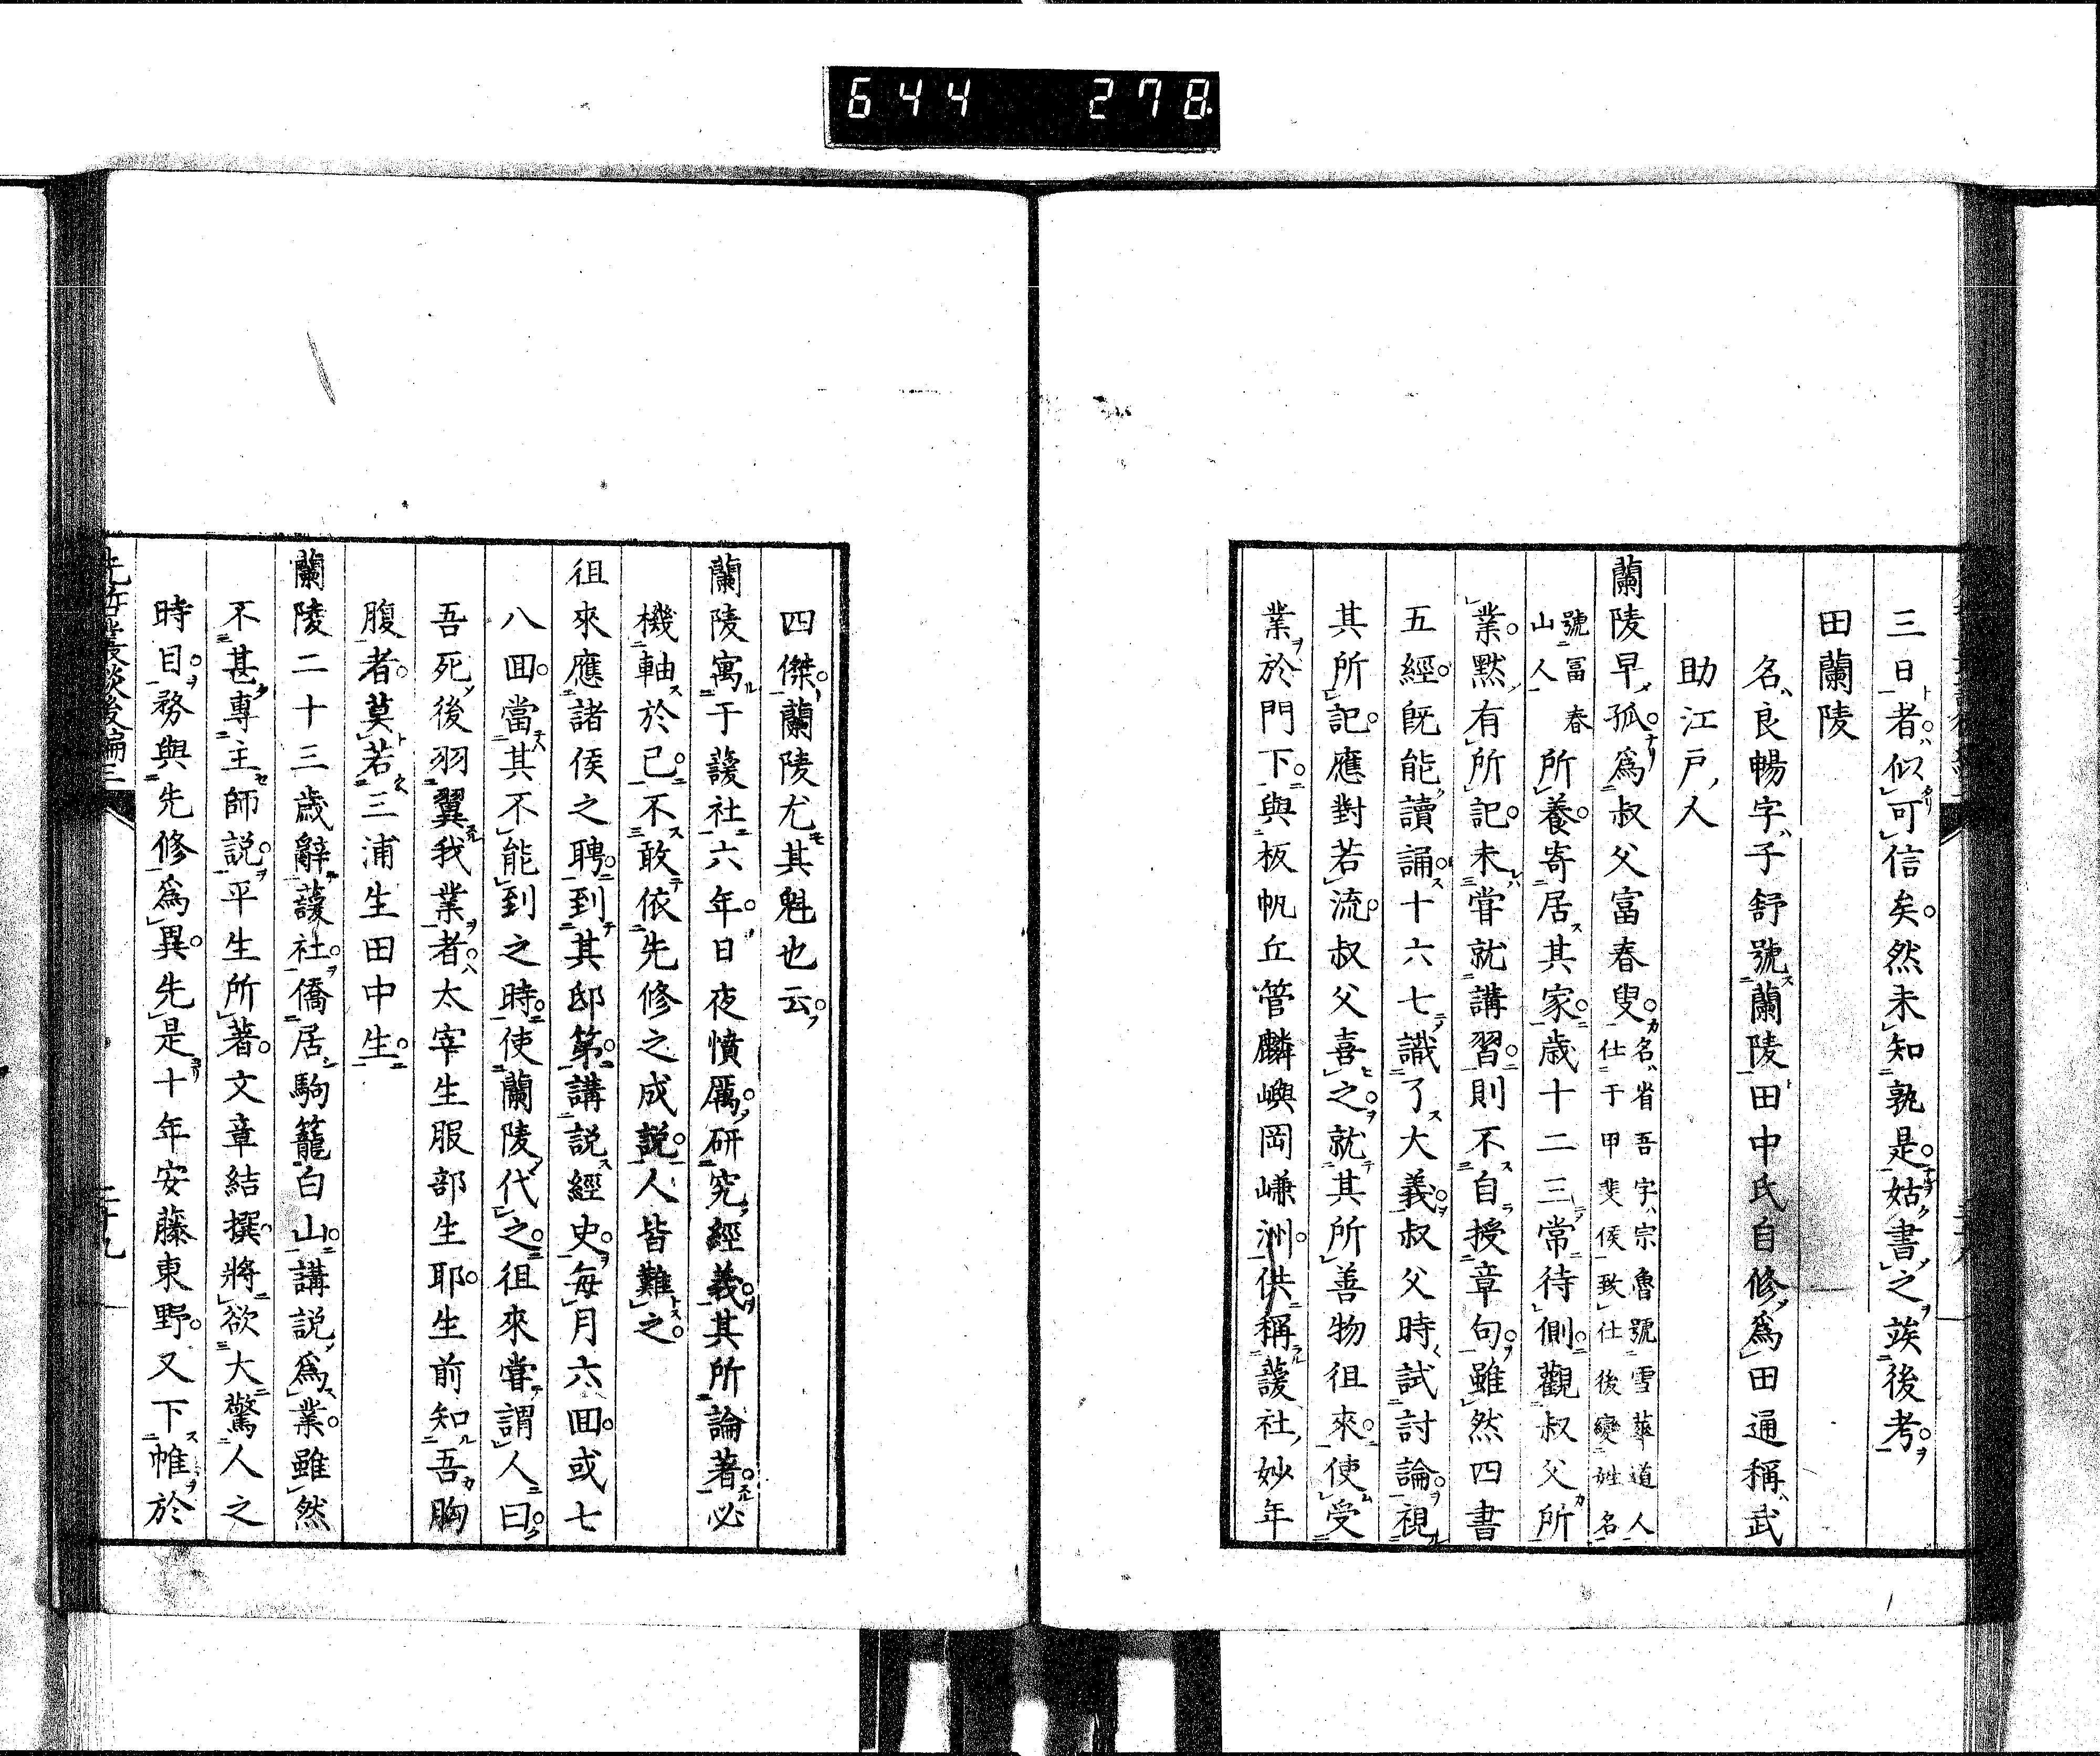 644 278
三日者似可信矣然未知孰是姑書之竢後考
田蘭陵
名良暢字子舒號蘭陵田中氏自修爲田通稱武
助江戸人
蘭陵早孤爲叔父富春叟名省吾字宗魯號雪華道人
仕于甲斐侯致仕後變姓名
號冨春
山人
所養寄居其家歳十二三常待側觀叔父所
業默有所記未甞就講習則不自授章句雖然四書
五經既能讀誦十六七識了大義叔父時試討論視
其所記應對若流叔父喜之就其所善物徂來使受
業於門下與板帆丘管麟嶼岡嵰洲供稱蘐社妙年
四傑蘭陵尤其魁也云
蘭陵寓于蘐社六年日夜憤厲研究經義其所論著必
機軸於己不敢依先修之成説人皆難之
徂來應諸侯之聘到其邸第講説經史毎月六囬或七
八囬當其不能到之時使蘭陵代之徂來甞謂人曰
吾死後羽翼我業者太宰生服部生耶生前知吾胸
腹者莫若三浦生田中生
蘭陵二十三歳辭蘐社僑居駒籠白山講説爲業雖然
不甚專主師説平生所著文章結撰將欲大驚人之
時目務與先修爲異先是十年安藤東野又下帷於
先哲叢談後編三
二十九